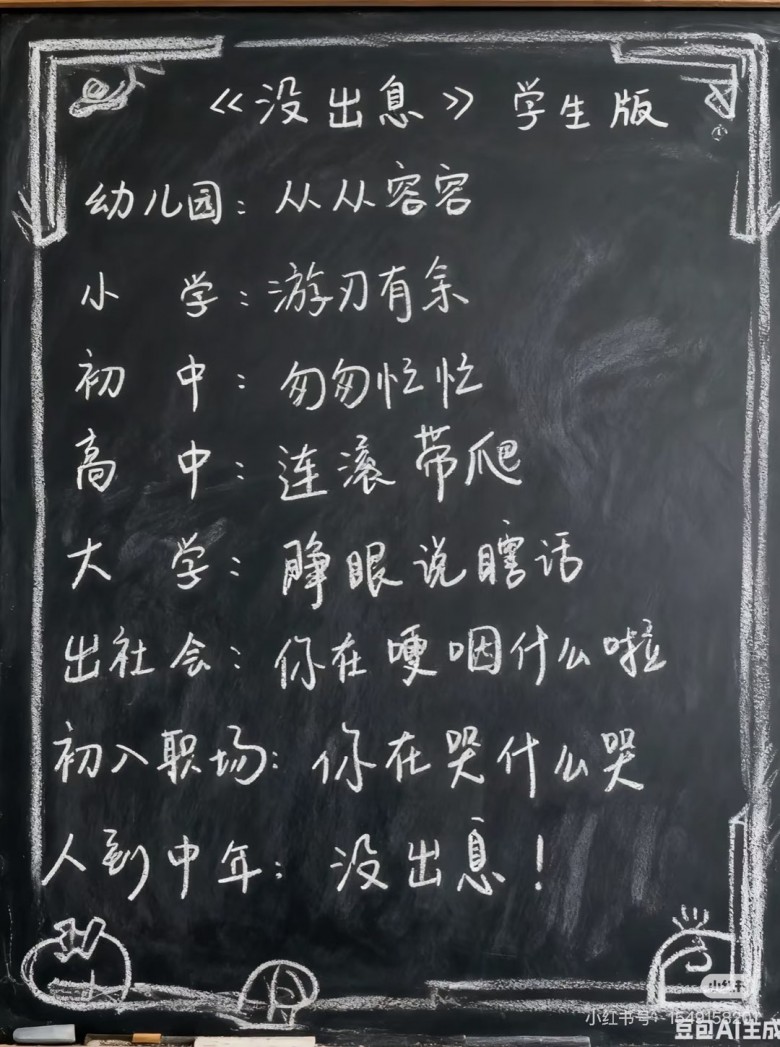 《没出息》学生版
幼儿园：从从容容
小 学：游刃有余
初 中：匆匆忙忙
高 中：连滚带爬
大 学：睁眼说瞎话
出社会：你在哽咽什么啦
初入职场：你在哭什么哭
人到中年：没出息！
小红书
小红书号：
豆包AI生成